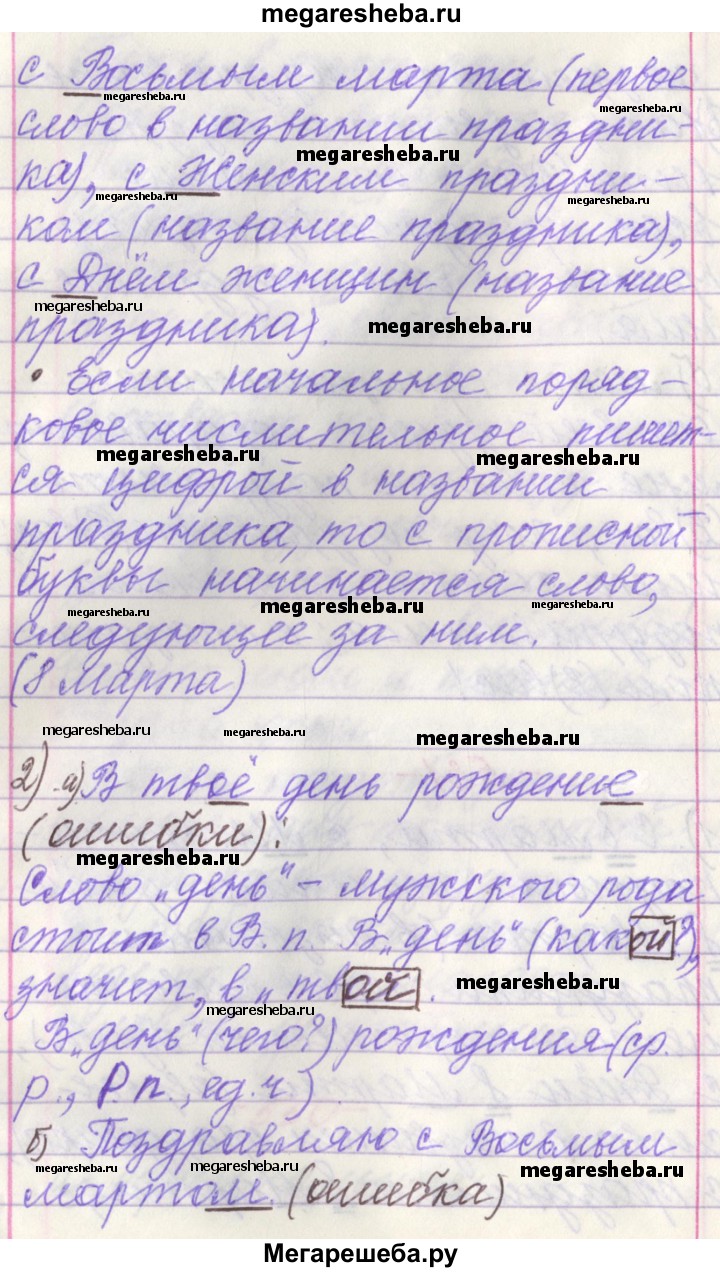 megaresheba.ru
с Восьмым марта (первое
megaresheba.ru
megaresheba.ru
слово в названии праздни-
megaresheba.ru
ка), с Женским праздни-
megaresheba.ru
megaresheba.ru
ком (название праздника),
с Днём женщин (название
megaresheba.ru
праздника).
megaresheba.ru
• Если начальное поряд-
ковое числительное пишет-
megaresheba.ru
megaresheba.ru
ся цифрой в названии
праздника, то с прописной
буквы начинается слово,
megaresheba.ru
megaresheba.ru
megaresheba.ru
следующее за ним.
(8 Марта)
megaresheba.ru
megaresheba.ru
megaresheba.ru
2) а) В твоё день рождение
(ошибки):
megaresheba.ru
Слово „день" - мужского рода
стоит в В. п. В „день" (какой?),
значит, в „твой.
megaresheba.ru
megaresheba.ru
В „день" (чего?) рождения (ср.
р., Р. п., ед. ч.).
б) Поздравляю с Восьмым
megaresheba.ru
megaresheba.ru
megaresheba.ru
мартом. (ошибка)
Мегарешеба.ру